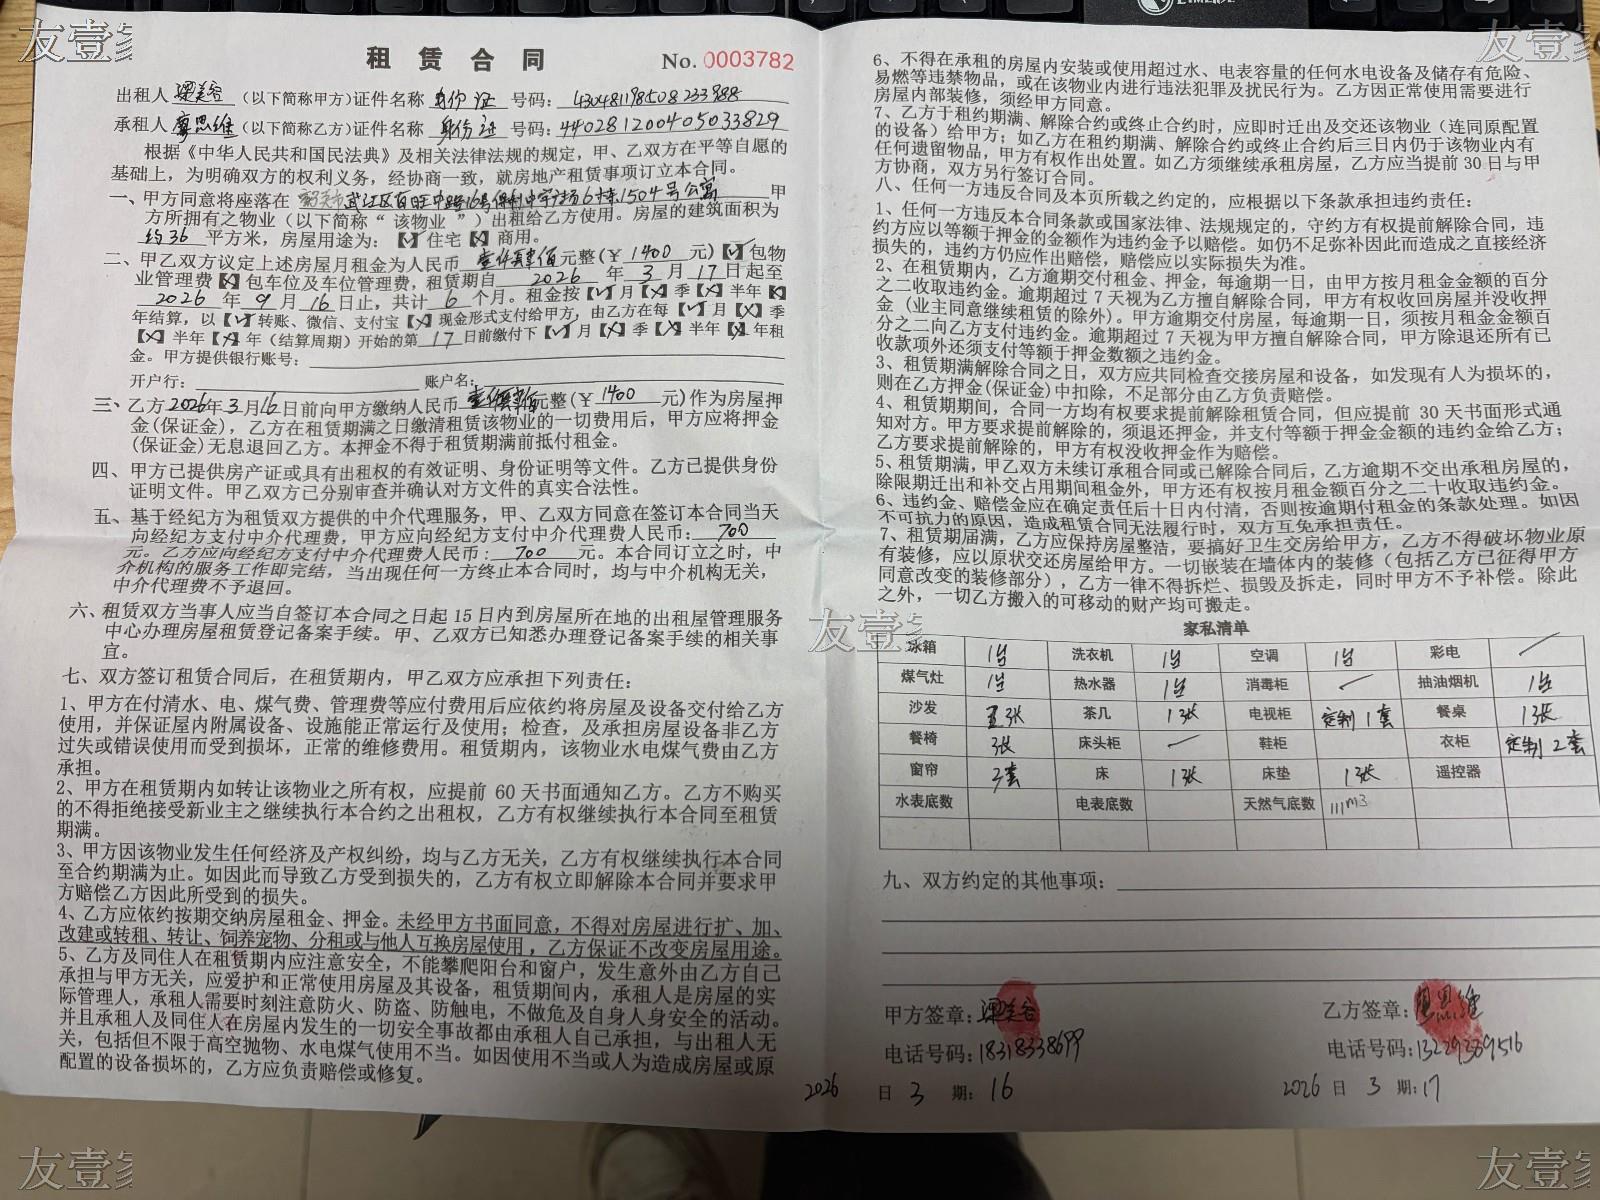 友壹家
友壹家
租 赁 合 同 No. 0003782
出租人 梁美容 (以下简称甲方)证件名称 身份证 号码: 430481198508233988
承租人 廖思维 (以下简称乙方)证件名称 身份证 号码: 440281200405033829
根据《中华人民共和国民法典》及相关法律法规的规定，甲、乙双方在平等自愿的
基础上，为明确双方的权利义务，经协商一致，就房地产租赁事项订立本合同。
一、甲方同意将座落在 韶关市武江区百旺中路16号保利中宇广场6栋1504号公寓 甲
方所拥有之物业（以下简称“ 该物业 ”）出租给乙方使用。房屋的建筑面积为
约36 平方米，房屋用途为: 【✓】住宅【✗】商用。
二、甲乙双方议定上述房屋月租金为人民币 壹仟肆佰 元整(￥ 1400 元)【✓】包物
业管理费【✗】包车位及车位管理费，租赁期自 2026 年 3 月 17 日起至
2026 年 9 月 16 日止，共计 6 个月。租金按【✓】月【✗】季【✗】半年【✗】
年结算，以【✓】转账、微信、支付宝【✗】现金形式支付给甲方，由乙方在每【✓】月【✗】季
【✗】半年【✗】年（结算周期）开始的第 17 日前缴付下【✓】月【✗】季【✗】半年【✗】年租
金。甲方提供银行账号:
开户行: 账户名:
三、乙方 2026 年 3 月 16 日前向甲方缴纳人民币 壹仟肆佰 元整(￥ 1400 元)作为房屋押
金(保证金)，乙方在租赁期满之日缴清租赁该物业的一切费用后，甲方应将押金
(保证金)无息退回乙方。本押金不得于租赁期满前抵付租金。
四、甲方已提供房产证或具有出租权的有效证明、身份证明等文件。乙方已提供身份
证明文件。甲乙双方已分别审查并确认对方文件的真实合法性。
五、基于经纪方为租赁双方提供的中介代理服务，甲、乙双方同意在签订本合同当天
向经纪方支付中介代理费，甲方应向经纪方支付中介代理费人民币: 700
元。乙方应向经纪方支付中介代理费人民币: 700 元。本合同订立之时，中
介机构的服务工作即完结，当出现任何一方终止本合同时，均与中介机构无关，
中介代理费不予退回。
六、租赁双方当事人应当自签订本合同之日起 15 日内到房屋所在地的出租屋管理服务
中心办理房屋租赁登记备案手续。甲、乙双方已知悉办理登记备案手续的相关事
宜。
七、双方签订租赁合同后，在租赁期内，甲乙双方应承担下列责任:
1、甲方在付清水、电、煤气费、管理费等应付费用后应依约将房屋及设备交付给乙方
使用，并保证屋内附属设备、设施能正常运行及使用；检查，及承担房屋设备非乙方
过失或错误使用而受到损坏，正常的维修费用。租赁期内，该物业水电煤气费由乙方
承担。
2、甲方在租赁期内如转让该物业之所有权，应提前 60 天书面通知乙方。乙方不购买
的不得拒绝接受新业主之继续执行本合约之出租权，乙方有权继续执行本合同至租赁
期满。
3、甲方因该物业发生任何经济及产权纠纷，均与乙方无关，乙方有权继续执行本合同
至合约期满为止。如因此而导致乙方受到损失的，乙方有权立即解除本合同并要求甲
方赔偿乙方因此所受到的损失。
4、乙方应依约按期交纳房屋租金、押金。未经甲方书面同意，不得对房屋进行扩、加、
改建或转租、转让、饲养宠物、分租或与他人互换房屋使用，乙方保证不改变房屋用途。
5、乙方及同住人在租赁期内应注意安全，不能攀爬阳台和窗户，发生意外由乙方自己
承担与甲方无关，应爱护和正常使用房屋及其设备，租赁期间内，承租人是房屋的实
际管理人，承租人需要时刻注意防火、防盗、防触电，不做危及自身人身安全的活动。
并且承租人及同住人在房屋内发生的一切安全事故都由承租人自己承担，与出租人无
关，包括但不限于高空抛物、水电煤气使用不当。如因使用不当或人为造成房屋或原
配置的设备损坏的，乙方应负责赔偿或修复。
6、不得在承租的房屋内安装或使用超过水、电表容量的任何水电设备及储存有危险、
易燃等违禁物品，或在该物业内进行违法犯罪及扰民行为。乙方因正常使用需要进行
房屋内部装修，须经甲方同意。
7、乙方于租约期满、解除合约或终止合约时，应即时迁出及交还该物业（连同原配置
的设备）给甲方；如乙方在租约期满、解除合约或终止合约后三日内仍于该物业内有
任何遗留物品，甲方有权作出处置。如乙方须继续承租房屋，乙方应当提前 30 日与甲
方协商，双方另行签订合同。
八、任何一方违反合同及本页所载之约定的，应根据以下条款承担违约责任:
1、任何一方违反本合同条款或国家法律、法规规定的，守约方有权提前解除合同，违
约方应以等额于押金的金额作为违约金予以赔偿。如仍不足弥补因此而造成之直接经济
损失的，违约方仍应作出赔偿，赔偿应以实际损失为准。
2、在租赁期内，乙方逾期交付租金、押金，每逾期一日，由甲方按月租金金额的百分
之二收取违约金。逾期超过 7 天视为乙方擅自解除合同，甲方有权收回房屋并没收押
金（业主同意继续租赁的除外）。甲方逾期交付房屋，每逾期一日，须按月租金金额百
分之二向乙方支付违约金。逾期超过 7 天视为甲方擅自解除合同，甲方除退还所有已
收款项外还须支付等额于押金数额之违约金。
3、租赁期满解除合同之日，双方应共同检查交接房屋和设备，如发现有人为损坏的，
则在乙方押金(保证金)中扣除，不足部分由乙方负责赔偿。
4、租赁期期间，合同一方均有权要求提前解除租赁合同，但应提前 30 天书面形式通
知对方。甲方要求提前解除的，须退还押金，并支付等额于押金金额的违约金给乙方；
乙方要求提前解除的，甲方有权没收押金作为赔偿。
5、租赁期满，甲乙双方未续订承租合同或已解除合同后，乙方逾期不交出承租房屋的，
除限期迁出和补交占用期间租金外，甲方还有权按月租金额百分之二十收取违约金。
6、违约金、赔偿金应在确定责任后十日内付清，否则按逾期付租金的条款处理。如因
不可抗力的原因，造成租赁合同无法履行时，双方互免承担责任。
7、租赁期届满，乙方应保持房屋整洁，要搞好卫生交房给甲方，乙方不得破坏物业原
有装修，应以原状交还房屋给甲方。一切嵌装在墙体内的装修（包括乙方已征得甲方
同意改变的装修部分），乙方一律不得拆烂、损毁及拆走，同时甲方不予补偿。除此
之外，一切乙方搬入的可移动的财产均可搬走。
友壹家
家私清单
冰箱 1台 洗衣机 1台 空调 1台 彩电 ／
煤气灶 1台 热水器 1台 消毒柜 ／ 抽油烟机 1台
沙发 3张 茶几 1张 电视柜 定制1套 餐桌 1张
餐椅 3张 床头柜 ／ 鞋柜 衣柜 定制2套
窗帘 3套 床 1张 床垫 1张 遥控器
水表底数 电表底数 天然气底数 111m3
九、双方约定的其他事项:
甲方签章: 梁美容 乙方签章: 廖思维
电话号码: 18318338699 电话号码: 13229389516
2026 日 3 期: 16 2026 日 3 期: 17
友壹家
友壹家